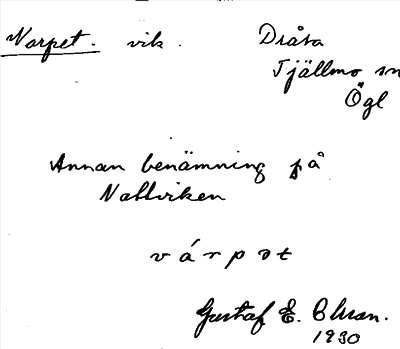 Varpet. vik. Dråsa
Tjällmo sn
Ögl
Annan benämning på
Nattviken
v á r p ə t
Gustaf E. Olsson.
1930